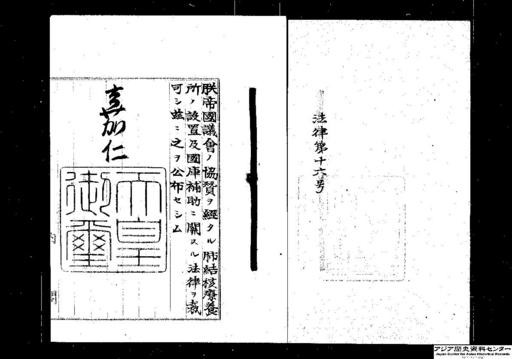 法律第十六号
朕帝國議會ノ協賛ヲ經タル肺結核療養
所ノ設置及國庫補助ニ關スル法律ヲ裁
可シ茲ニ之ヲ公布セシム
嘉仁
天皇御璽
内閣
アジア歴史資料センター
Japan Center for Asian Historical Records